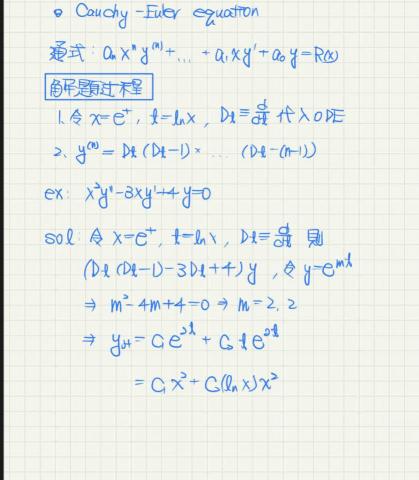 • Cauchy-Euler equation
通式: aₙxⁿy⁽ⁿ⁾+...+a₁xy'+a₀y=R(x)
解題过程
1.令 x=eᵗ, t=lnx, Dt≡d/dt 代入ODE
2. y⁽ⁿ⁾=Dt(Dt-1)×....(Dt-(n-1))
ex: x²y"-3xy'+4y=0
sol: 令 x=eᵗ, t=lnx, Dt≡d/dt 則
(Dt(Dt-1)-3Dt+4)y, 令 y=eᵐᵗ
⇒ m²-4m+4=0 ⇒ m=2,2
⇒ y_H=C₁e²ᵗ+C₂te²ᵗ
=C₁x²+C₂(lnx)x²